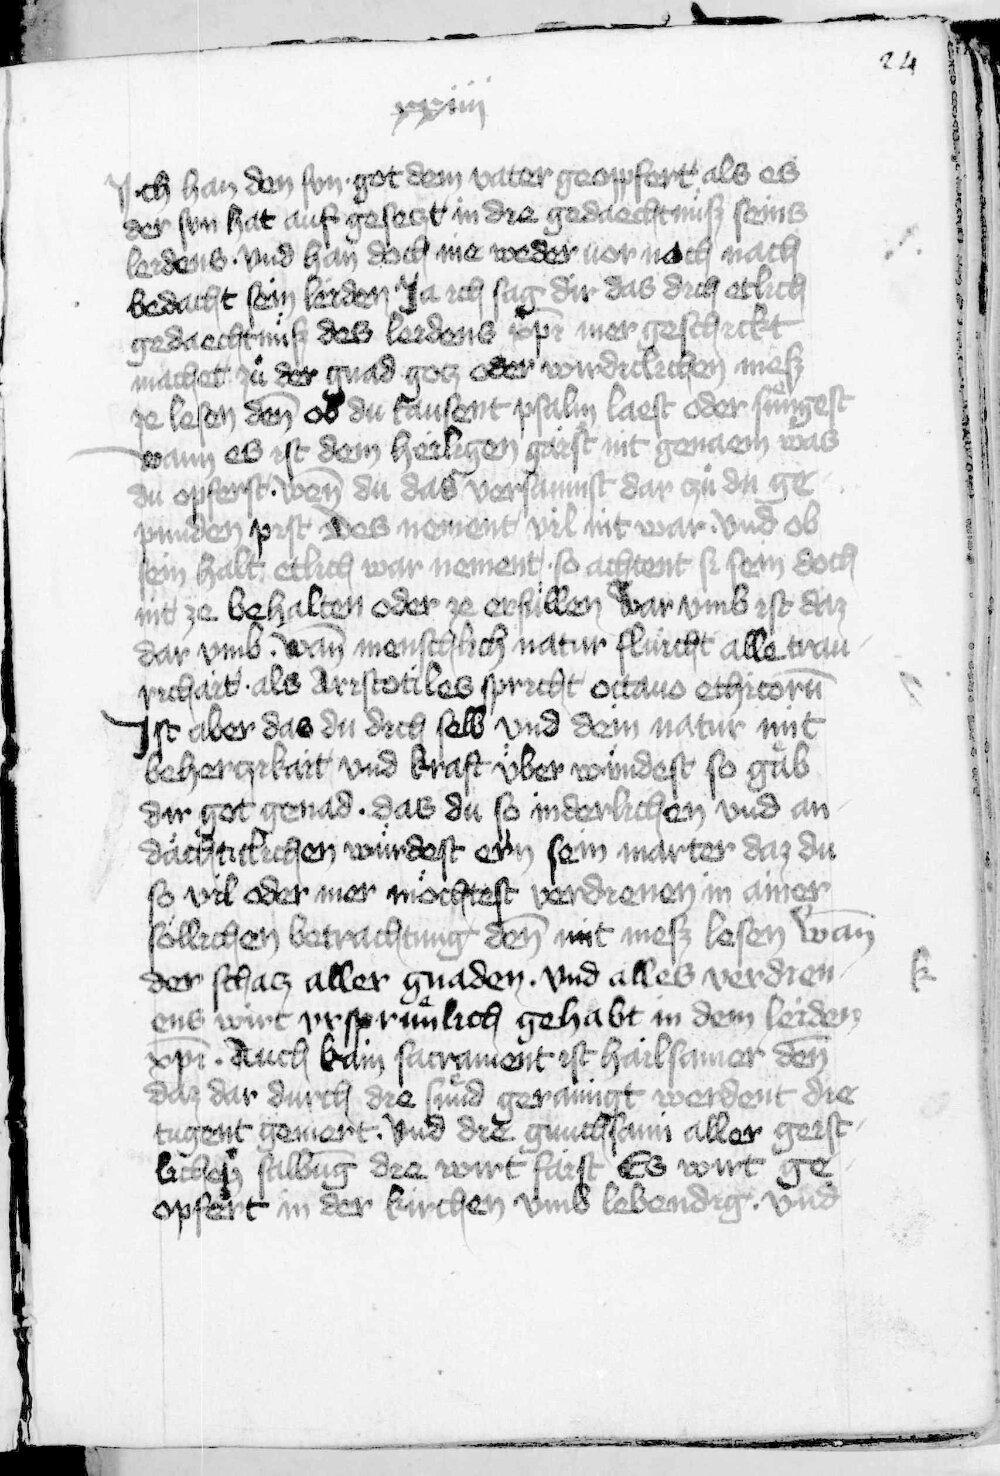 24
xxiiii
Ich han den sun · got dem vater geopfert als es
der sun hat auf gesetzt in die gedaechtnuß seins
leidens · Vnd han doch nie weder uor noch nach
bedacht sein leiden Ja ich sag dir das dich etlich
gedaechtnuß des leidens xp̄i mer geschickt
machet zů der gnad gotz oder wirdiclichen meß
ze lesen deñ ob du tausent psalm laest oder sungest
wann es ist dem heiligen gaist nit genaem was
du opferst · weñ du das versaumst dar zů du ge-
punden pist Des nement vil nit war · Vnd ob
sein halt etlich war nement · so achtent si sein doch
nit ze behalten oder ze erfüllen War vmb ist daz
dar vmb · Wañ menschlich natur flücht alle trau-
richait · als Aristotiles spricht octauo ethicorū
Ist aber das du dich selb vnd dein natur mit
behertzikait vnd kraft über windest so gäb
dir got genad · das du so inderlichen vnd an-
dächticlichen würdest ern sein marter daz du
so vil oder mer möchtest verdienen in ainer
söllichen betrachtung deñ mit meß lesen Wañ
der schatz aller gnaden · vnd alles verdien-
k
ens wirt vrsprünlich gehabt in dem leiden
xp̄i · Auch kain sacrament ist hailsamer deñ
daz dar durch die sünd gerainigt werdent die
tugent gemert · Vnd die gnuchsam aller geist-
lichen salbūg die wirt faist Es wirt ge-
opfert in der kirchen vmb lebendig · vnd